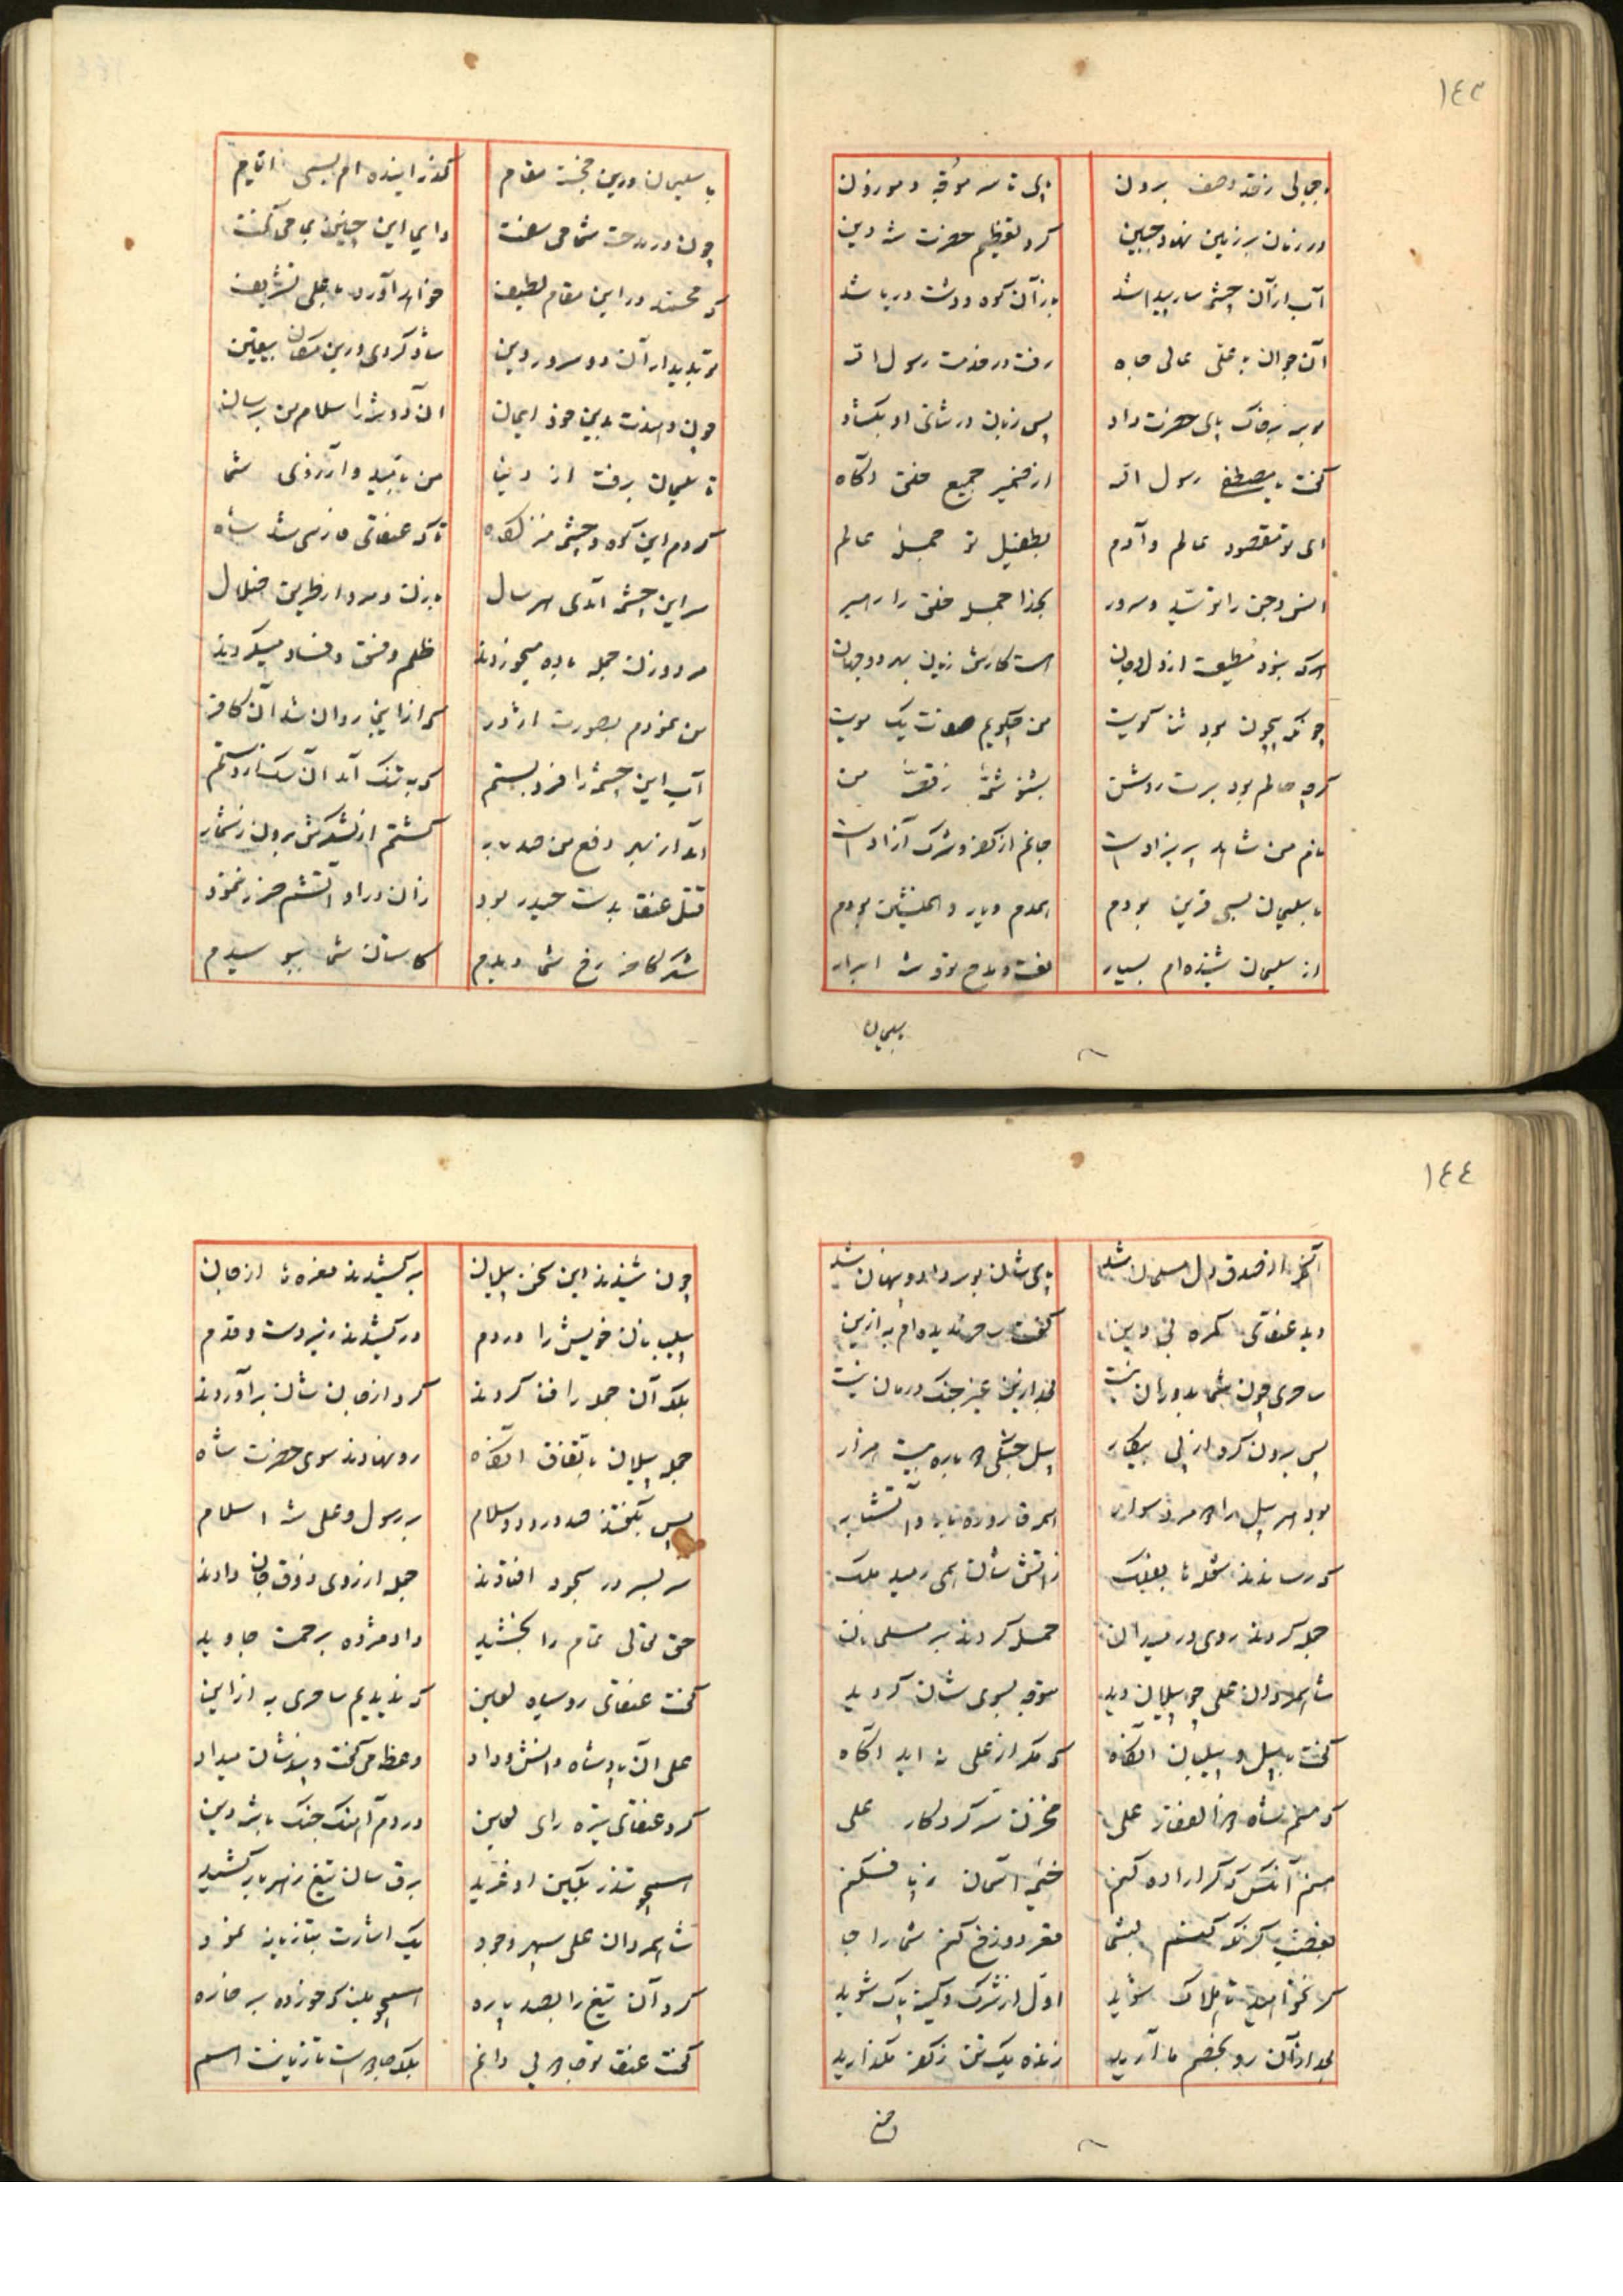 ١٤٣
در زمان بر زمین نهاد جبین کرد تعظیم حضرت شه دین
آب از آن چشمه سار پیدا شد باز آن کوه و دشت دریا شد
آن جوان با علی عالی جاه رفت در خدمت رسول اله
بوسه بر خاک پای حضرت داد پس زبان در ثنای او بکشاد
گفت یا مصطفی رسول اله از ضمیر جمیع خلق آگاه
ای تو مقصود عالم و آدم بطفیل تو جمله عالم
انس و جن را تو سید و سرور بخدا جمله خلق را رهبر
هر که نبود مطیعت از دل و جان هست کارش زیان بهر دو جهان
من چگویم صفت یک مویت
گرچه حالم بود برت روشن بشنو شمهٔ ز قصهٔ من
نام من شاهد پریزاد است جانم از کفر و شرک آزاد است
با سلیمان بسی قرین بودم همدم و یار و همنشین بودم
از سلیمان شنیده ام بسیار نعت و مدح تو شه ابرار
بسلیمان
با سلیمان درین خجسته مقام گذرانیده ام بسی ایام
چون در مدحت شما می سفت دایم این چنین بمن می گفت
که محمد در این مقام لطیف خواهد آورد با علی تشریف
تو بدیدار آن دو سرور دین شاد گردی درین مکان بیقین
آن دو شه را سلام من برسان
تا سلیمان برفت از دنیا من باتمید و آرزوی شما
کردم این کوه و چشمه منزلگاه تا که عنقای فارسی شد شاه
بر سر این چشمه آمدی هر سال با زن و مرد از طریق ضلال
مرد و زن جمله باده میخوردند ظلم و فسق و فساد میکردند
من نمودم بصورت اژدر که از اینجا روان شد آن کافر
آب این چشمه را فرو بستم که به تنگ آمد آن
آمد از بهر دفع من صد بار کشتم از لشکرش برون ز شمار
قتل عنقا بدست حیدر بود زان در او آتشم ضرر ننمود
شکر کاخر رخ شما دیدم کاستان شما ببوسیدم
١٤٤
آنکه از صدق دل مسلمان شد پای شان بوسه داد و پنهان شد
دید عنقای گمره بی دین گفت ساحر ندیده ام به ازین
ساحری چون شما بدوران نیست بعد ازین غیر جنگ درمان نیست
پس برون کرد از پی پیکار پیل جنگی دوباره بیست هزار
بود هر پیل را دو مرد سوار همه قاروره باز و آتشبار
که رساندند شعله تا بفلک ز آتش شان همی رمید ملک
جمله کردند روی در میدان حمله کردند بر مسلمانان
شاه مردان علی چو پیلان دید متوجه بسوی شان گردید
گفت با پیل و پیلبان آنگاه که مگر از علی نه اید آگاه
که منم شاه ذوالفقار علی مخزن سر کردگار علی
منم آنکس که گر اراده کنم خیمه آسمان ز پا فکنم
بغضب گر نگه کنم بشما قعر دوزخ کنم شما را جا
گر نخواهید تا هلاک شوید اول از شرک و کینه پاک شوید
بعد از آن رو بخصم ما آرید زنده یک تن ز کفر مگذارید
چون شنیدند این سخن پیلان برکشیدند نعره ها از جان
پیلبانان خویش را در دم درکشیدند زیر دست و قدم
بلکه آن جمله را فنا کردند گرد از جان شان برآوردند
جمله پیلان باتفاق آنگاه رو نهادند سوی حضرت شاه
پس بگفتند صد درود و سلام بر رسول و علی شه اسلام
سر بسر در سجود افتادند جمله از روی ذوق جان دادند
حق تعالی تمام را بخشید داد مژده برحمت جاوید
گفت عنقای روسیاه لعین که ندیدیم ساحری به از این
علی آن پادشاه دانش و داد وعظ می گفت و پندشان میداد
کرد عنقای تیره رای لعین در دم آهنگ جنگ با شه دین
همچو تندر بکین او غرید برق سان تیغ زهر بار کشید
شاه مردان علی سپهر وجود یک اشارت بتازیانه نمود
کرد آن تیغ را بصد پاره
گفت عنقا تو جادویی دانم بلکه جادوست تازیانت هم